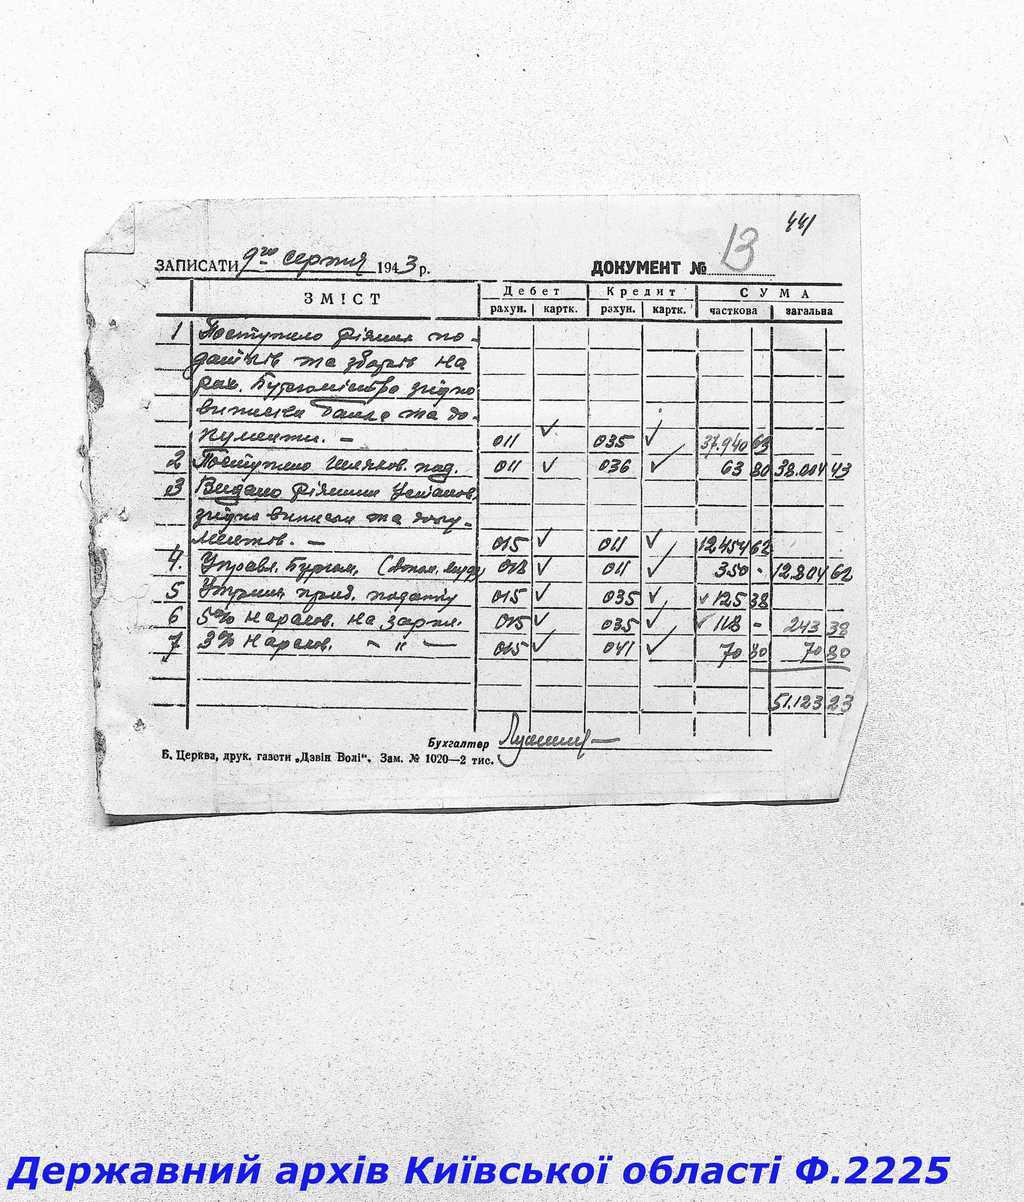 441
ЗАПИСАТИ 9го серпня 1943 р. ДОКУМЕНТ № 13
ЗМІСТ Дебет Кредит СУМА
рахун. картк. рахун. картк. часткова загальна
1 Поступило ріжних по-
датків та зборів на
рах. Бургомістра згідно
виписки банка та до-
кументи. — 011 035 37.940 63
2 Поступило шляхов. под. 011 036 63 80 38.004 43
3 Видано ріжним установ.
згідно виписки та доку-
ментов. — 015 011 12454 62
4. Управл. Бургом. 018 011 350 - 12.804 62
5 Утрим. приб. податку 015 035 125 38
6 5% нарахов. на зарпл. 015 035 118 - 243 38
7 3% нарахов. — " — 015 041 70 80 70 80
51.123 23
Бухгалтер
Б. Церква, друк. газети „Дзвін Волі“. Зам. № 1020—2 тис.
Державний архів Київської області Ф.2225